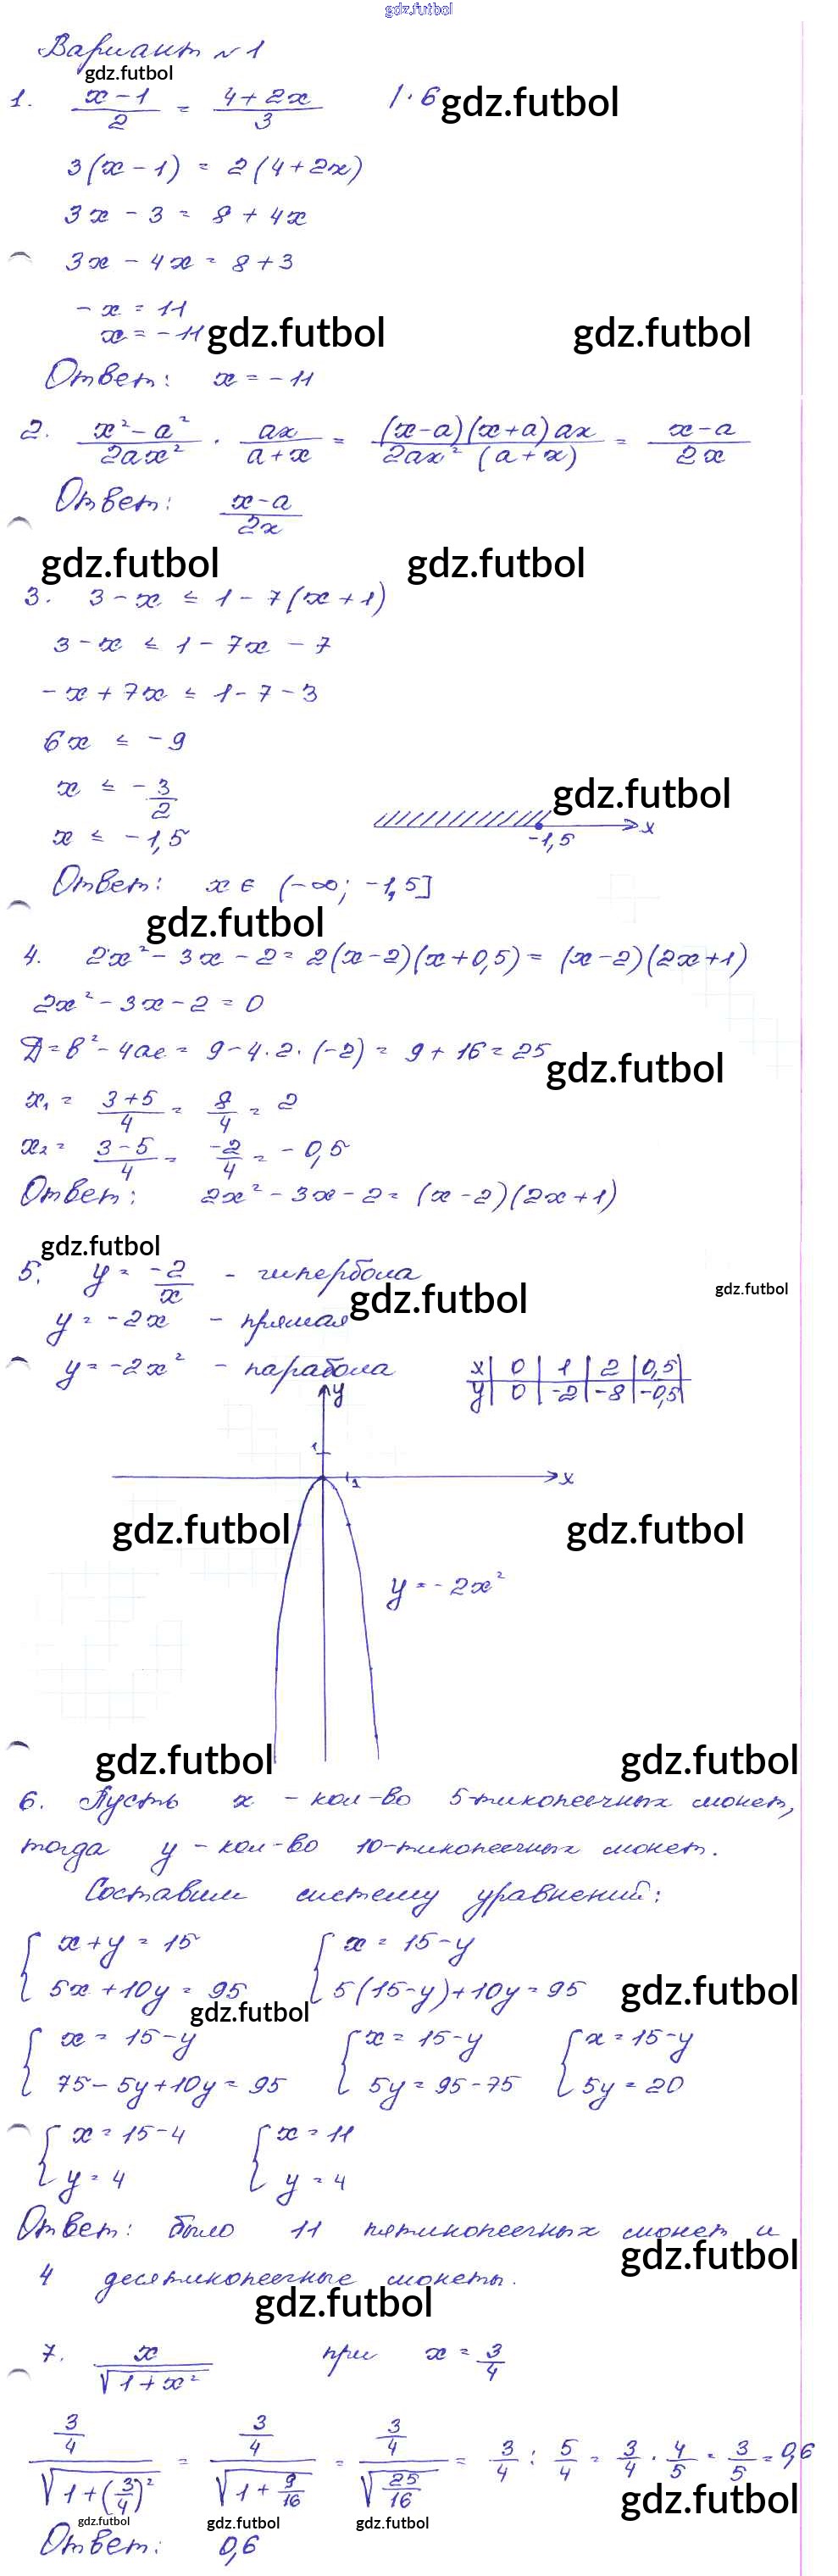 gdz.futbol
Вариант №1
gdz.futbol
1. (x-1)/2 = (4+2x)/3 |·6 gdz.futbol
3(x-1) = 2(4+2x)
3x - 3 = 8 + 4x
3x - 4x = 8+3
-x = 11
x = -11 gdz.futbol gdz.futbol
Ответ: x = -11
2. (x²-a²)/(2ax²) · ax/(a+x) = ((x-a)(x+a)ax)/(2ax²(a+x)) = (x-a)/(2x)
Ответ: (x-a)/(2x)
gdz.futbol gdz.futbol
3. 3-x ≤ 1-7(x+1)
3-x ≤ 1-7x-7
-x+7x ≤ 1-7-3
6x ≤ -9
x ≤ -3/2 gdz.futbol
x ≤ -1,5 -1,5 x
Ответ: x ∈ (-∞; -1,5]
gdz.futbol
4. 2x²-3x-2 = 2(x-2)(x+0,5) = (x-2)(2x+1)
2x²-3x-2=0
Д=b²-4ac = 9-4·2·(-2) = 9+16=25 gdz.futbol
x₁ = (3+5)/4 = 8/4 = 2
x₂ = (3-5)/4 = -2/4 = -0,5
Ответ: 2x²-3x-2 = (x-2)(2x+1)
gdz.futbol
5. y = -2/x - гипербола gdz.futbol gdz.futbol
y = -2x - прямая
y = -2x² - парабола
x | 0 | 1 | 2 | 0,5
y | 0 | -2 | -8 | -0,5
y
1
1 x
gdz.futbol gdz.futbol
y = -2x²
gdz.futbol gdz.futbol
6. Пусть x - кол-во 5-тикопеечных монет,
тогда y - кол-во 10-тикопеечных монет.
Составим систему уравнений:
{ x+y = 15 { x = 15-y
{ 5x+10y = 95 { 5(15-y)+10y = 95 gdz.futbol
gdz.futbol
{ x = 15-y { x = 15-y { x = 15-y
{ 75-5y+10y = 95 { 5y = 95-75 { 5y = 20
{ x = 15-4 { x = 11
{ y = 4 { y = 4
Ответ: было 11 пятикопеечных монет и
gdz.futbol
4 десятикопеечные монеты.
gdz.futbol
7. x/√(1+x²) при x = 3/4
(3/4)/√(1+(3/4)²) = (3/4)/√(1+9/16) = (3/4)/√(25/16) = 3/4 : 5/4 = 3/4 · 4/5 = 3/5 = 0,6
gdz.futbol
gdz.futbol gdz.futbol gdz.futbol
Ответ: 0,6